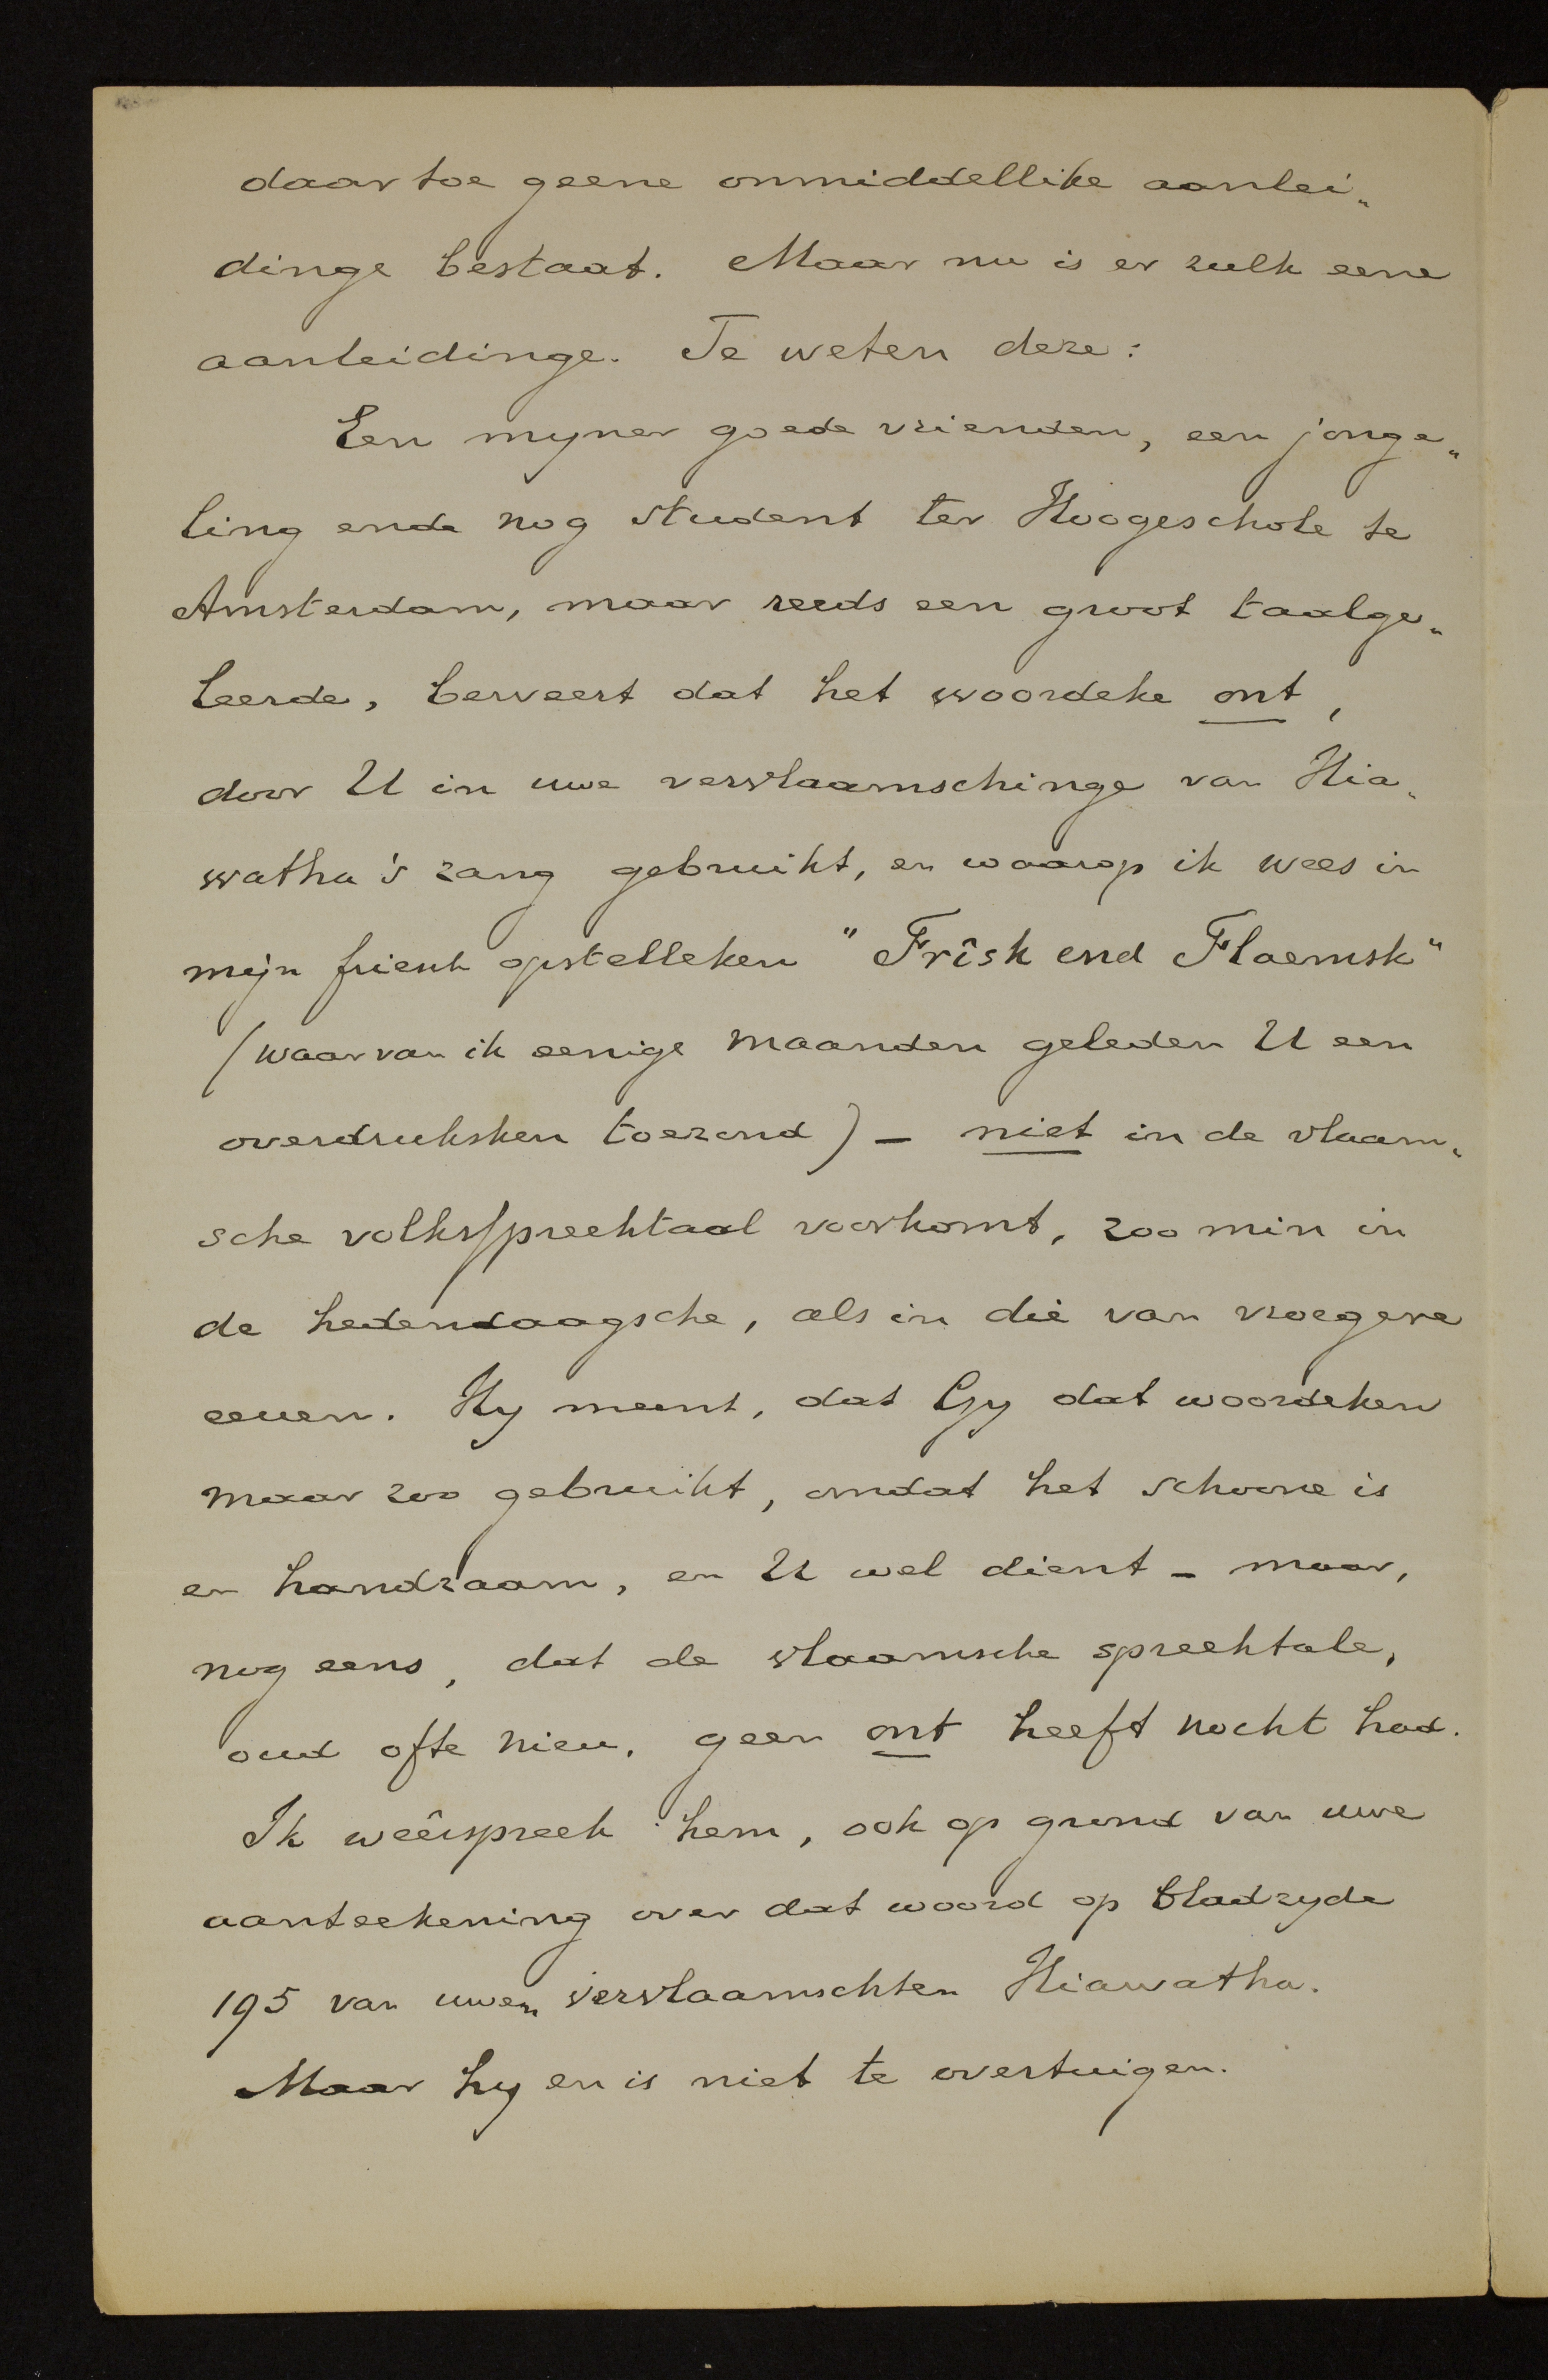 daartoe geene onmiddellike aanlei„
dinge bestaat. Maar nu is er zulk eene
aanleidinge. Te weten deze:
Een myner goede vrienden, een jonge„
ling ende nog student ter Hoogeschole te
Amsterdam, maar reeds een groot taalge„
leerde, beweert dat het woordeke ont,
door U in uwe vervlaamschinge van Hia„
watha's zang gebruikt, en waarop ik wees in
mijn friesch opstelleken "Frîsk end Flaemsk"
(waarvan ik eenige maanden geleden U een
overdruksken toezond) – niet in de vlaam„
sche volksspreektaal voorkomt, zoo min in
de hedendaagsche, als in die van vroegere
eeuen. Hy meent, dat Gy dat woordeken
maar zoo gebruikt, omdat het schoone is
en handzaam, en U wel dient – maar,
nog eens, dat de vlaamsche spreektale,
oud ofte nieu, geen ont heeft nocht had.
Ik weêrspreek hem, ook op grond van uwe
aanteekening over dat woord op bladzyde
195 van uwen vervlaamschten Hiawatha.
Maar hy en is niet te overtuigen.